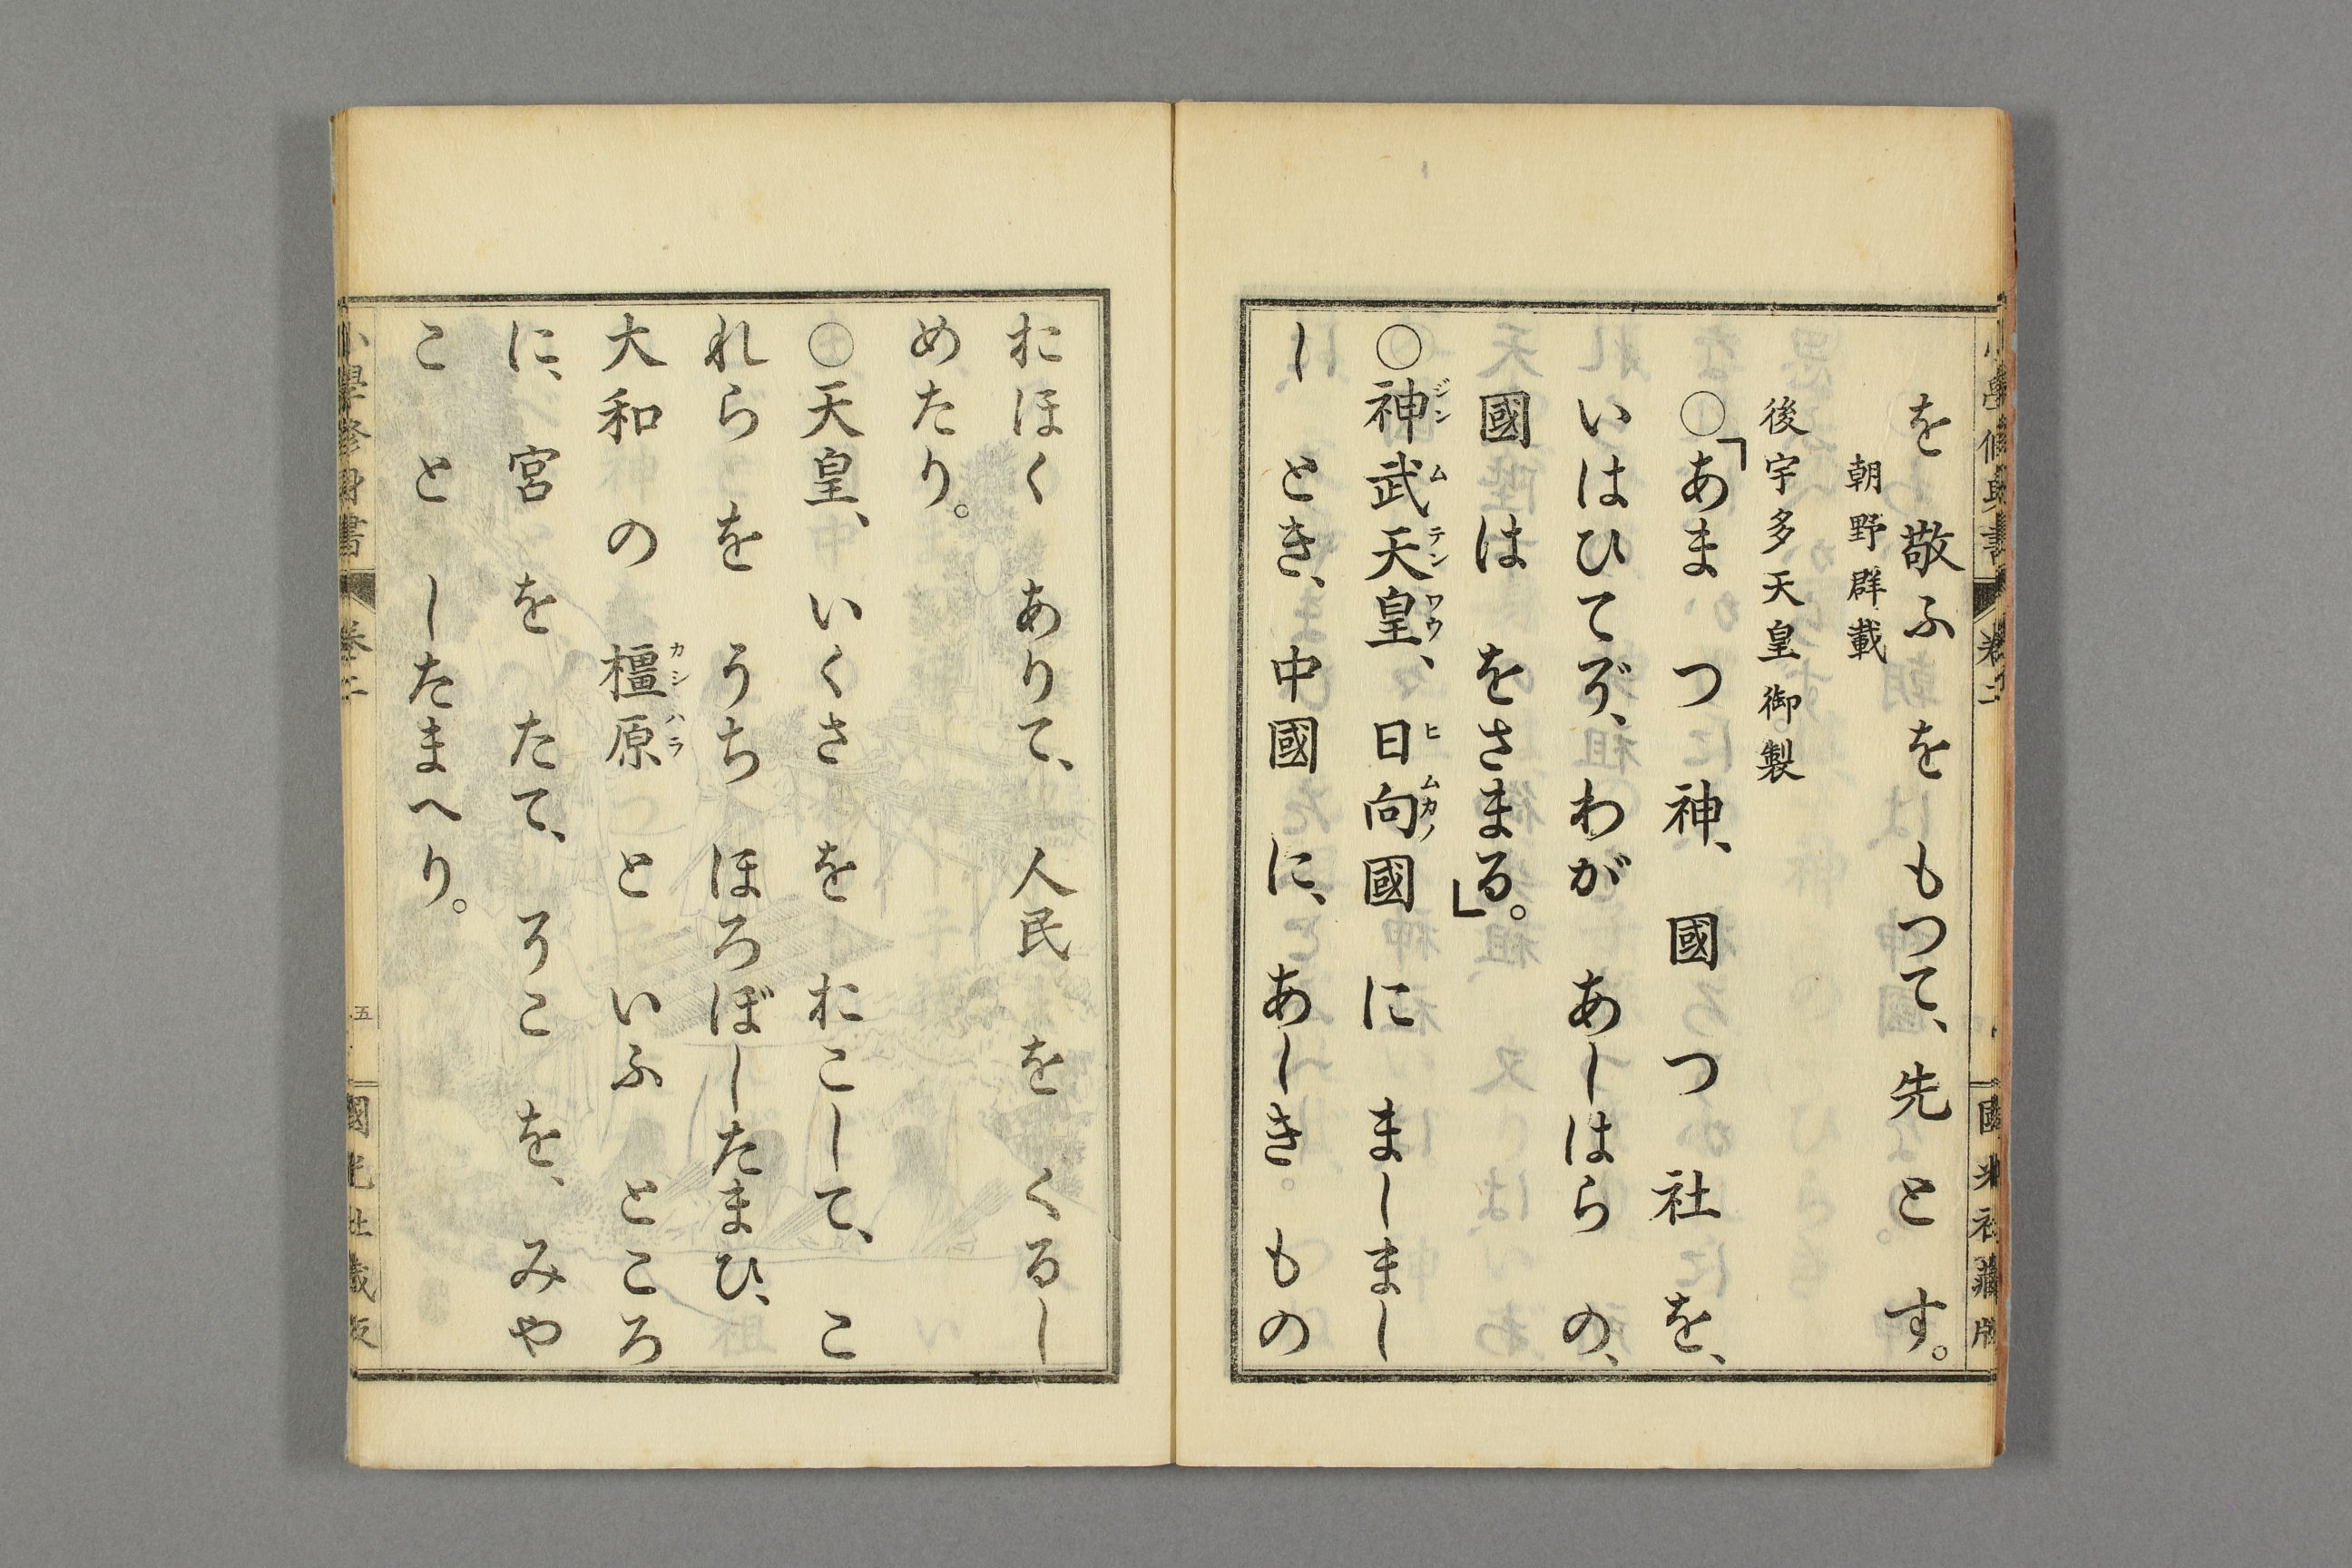 を敬ふをもつて、先とす。
朝野群載
後宇多天皇御製
○「あまつ神、國つ社を、
いはひてぞ、わがあしはらの、
國はをさまる」。
○神武天皇、日向國にましまし
ジンムテンワウ ヒムカノ
しとき、中國に、あしき。もの
おほくありて、人民をくるし
めたり。
○天皇、いくさをおこして、こ
れらをうちほろぼしたまひ、
大和の橿原といふところ
カシハラ
に、宮をたて、そこを、みや
ことしたまへり。
小學修身書 卷二 五 國光社藏版